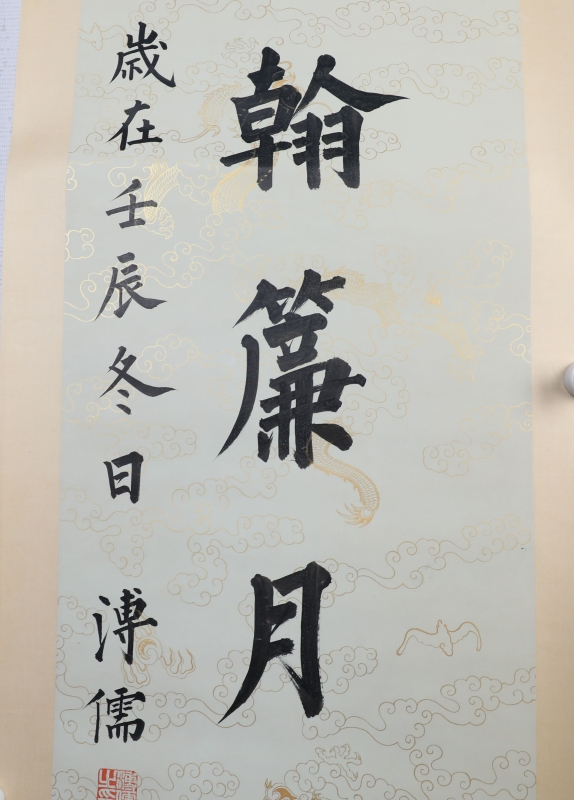 翰簾月
歲在壬辰冬日
溥儒